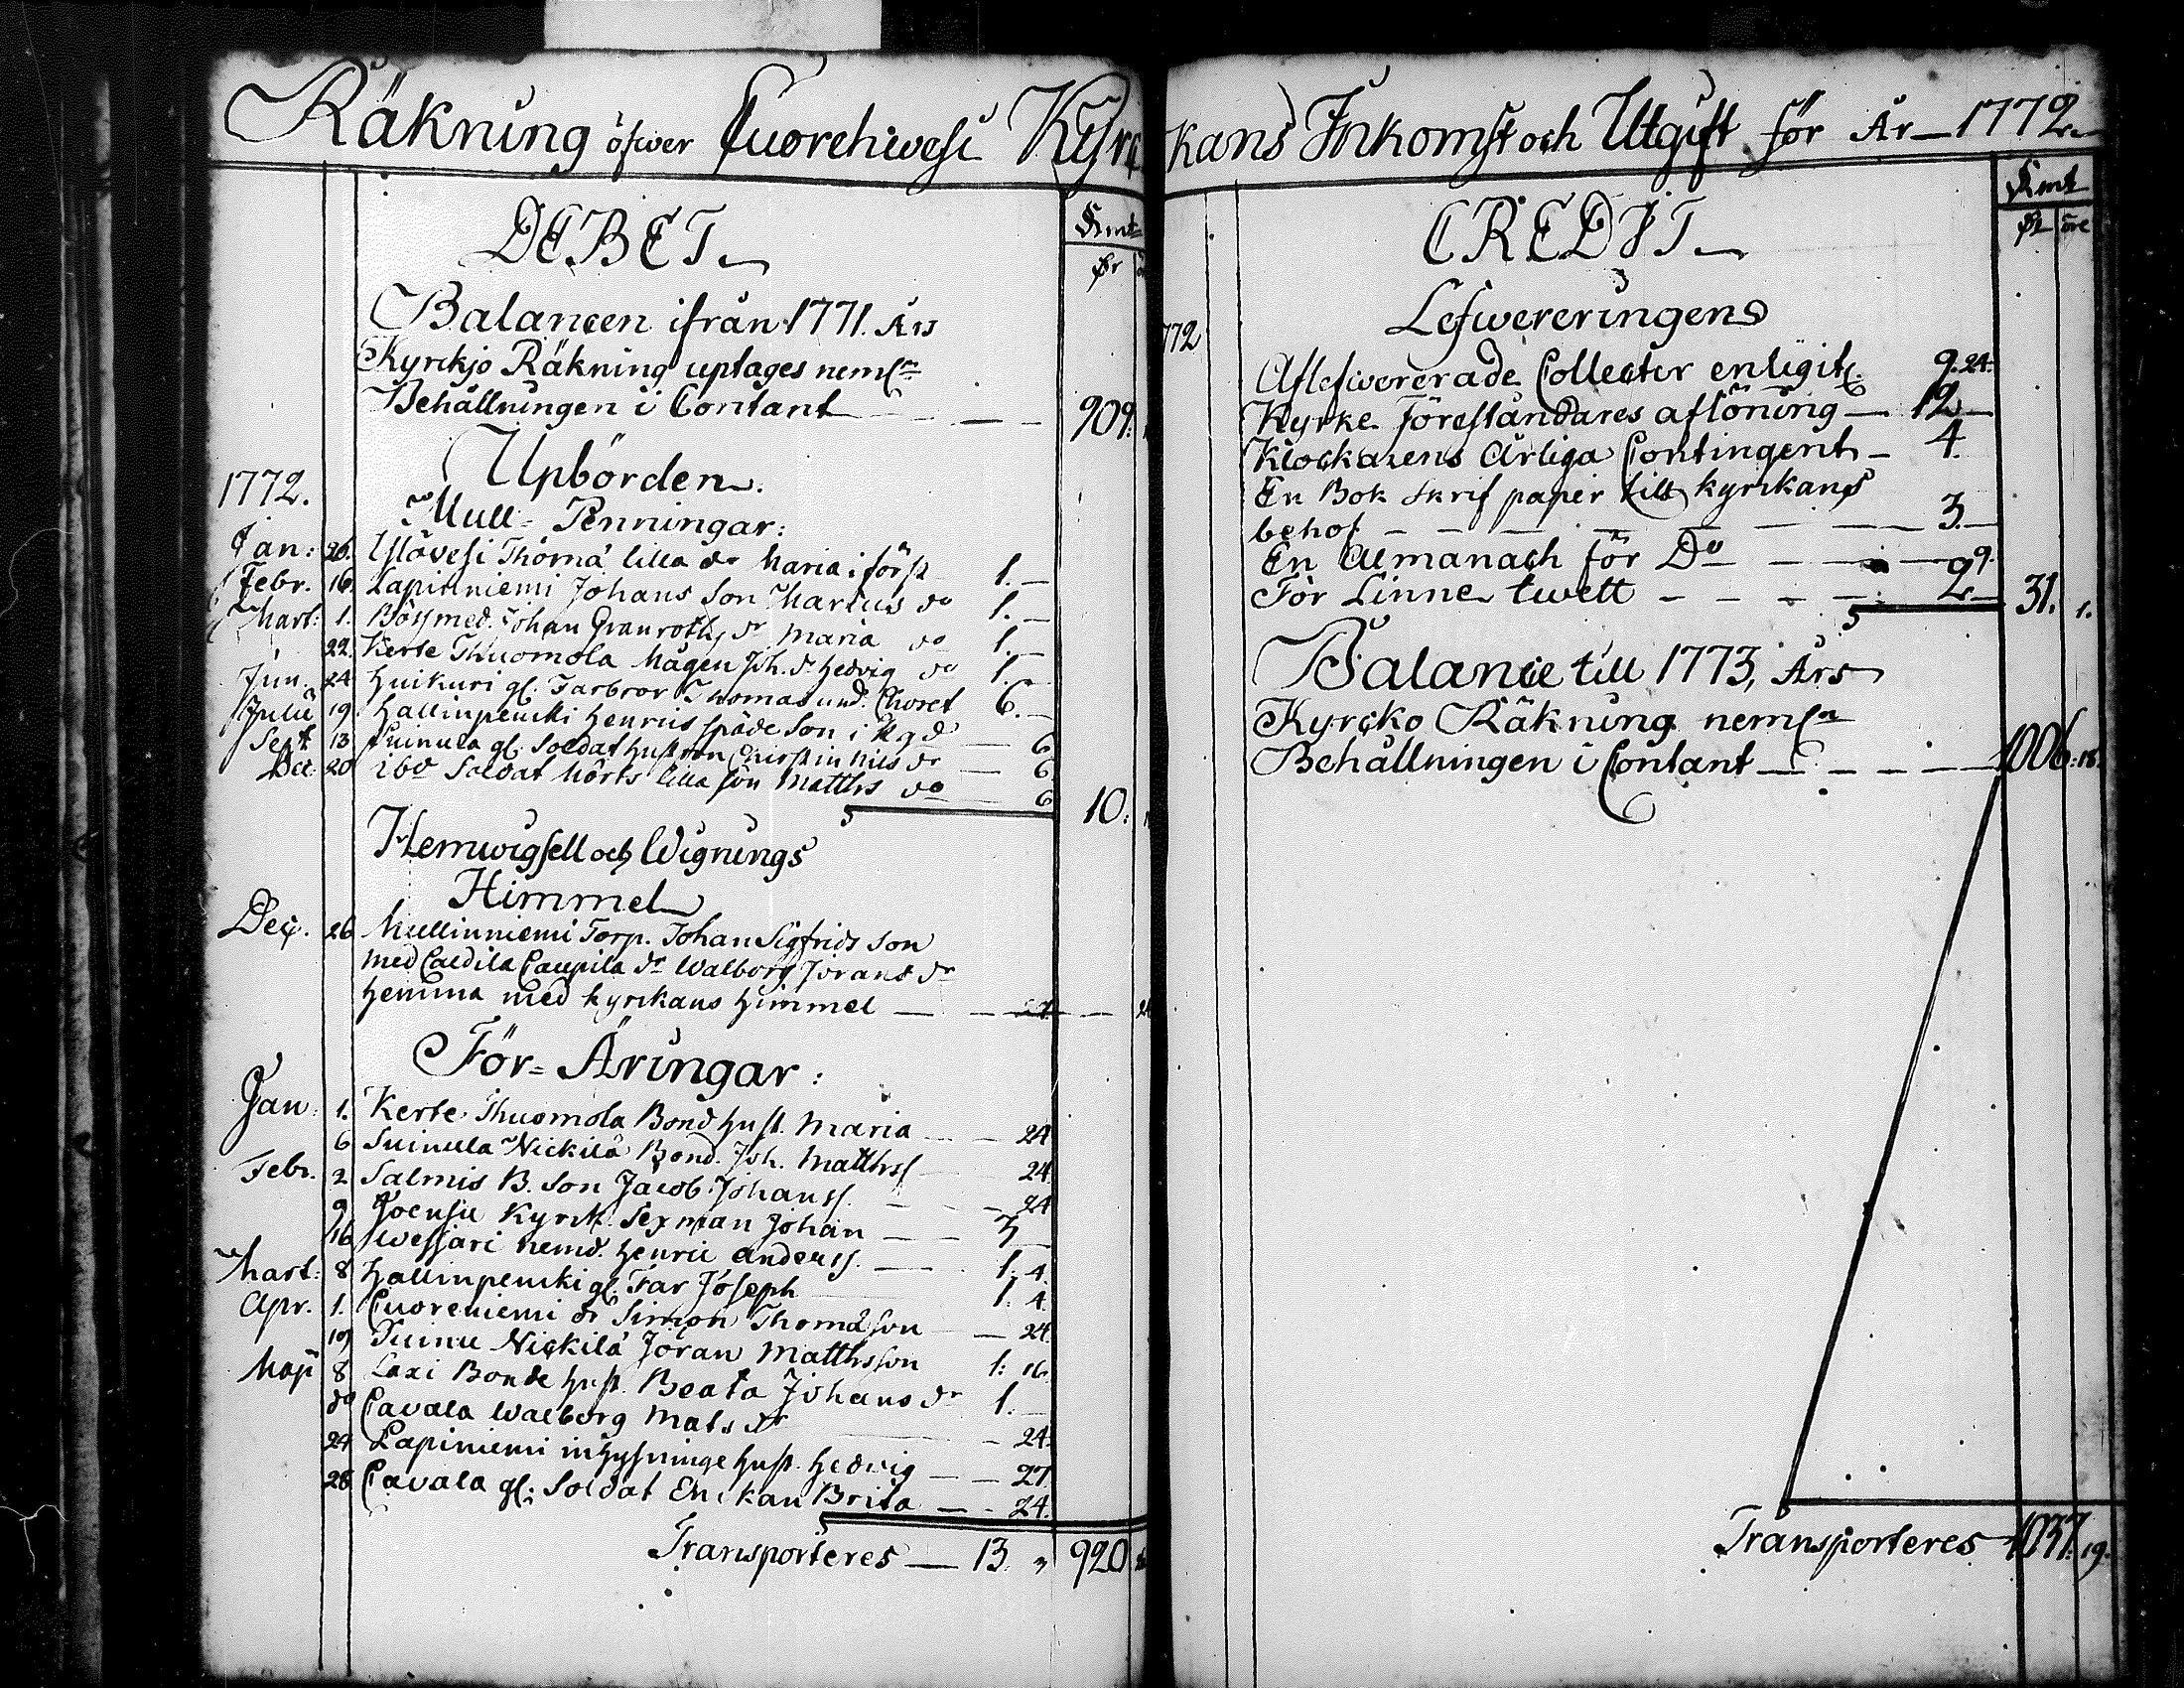 Räkning öfwer Cuorehwesi Kyrc
DEBET
Kmt
Dr
Balancen ifrån 1771. Års
Kyrckjo Räkning uptages neml:n
Behållningen i Contant — — 909:
Upbörden.
1772.
Mull-Penningar:
Jan: 26. Islövesi Thomá lilla dr Maria i förs 1. —
Febr. 16. Lapinniemi Johans Son Marcus do 1. —
Mart: 1. Böss med. Johan Granroths dr Maria do 1. —
22. Kerte Thuomola Mågen Joh. dr Hedvig do 1. —
Jun. 24 Huikuri gl. Farbror Thomas und. Choret 6. —
Julii 19 Hallinpencki Henrics späde Son i Kgd — 6
Sept 13 Suinula gl. Soldat hustrun Christin Nils dr — 6
Dec: 20 ibd Soldat Mörts lilla son Matths do — 6
10:
Hemwigsell och Wignings
Himmel
Dec. 26 Mullinniemi Torp. Johan Sigfrids son
med Caldila Caupila dr Walborg Jörans dr
hemma med kyrckans himmel — — 24 —
För-Äringar:
Jan: 1. Kerte Thuomola Bond hust. Maria — — 24
6 Suinula Nickilä Bond. Joh. Matthss — 24
Febr. 2 Salmis B. Son Jacob Johanss. — — 24
9 Joensu Kyrck. Sexman Johan — — 3
16 Wessari nemd. Henric Anderss. — 1. 4.
Mart: 8 Hallinpencki gl. Far Joseph 1: 4.
Apr. 1. Cuoreniemi dr Simon Thomæson — 24.
19 Suinu Nickilä Jöran Matthsson 1: 16
Maji 8 Laxi Bonde hust. Beata Johans dr 1. —
do Cavala Walborg Mats dr — 24.
24 Lapiniemi inhysninge hust. Hedvig — — 27
28 Cavala gl. Soldat Enckan Brita — — 24.
Transporteres — 13. 920
kans Inkomst och Utgift för År — 1772
CREDIT
Kmt
Dr öre
Lefwereringen
772
Aflefwererade Collecter enligit 9. 24.
Kyrke Föreståndares aflöning — 12 —
Klockarens Årliga Contingent — 4.
En Bok Skrif paper till kyrckans
behof — — — — — 3. —
En Almanach för Do — — — 9.
För Linne twett — — — — 2 — 31. 1.
Balance till 1773, Års
Kyrcko Räkning neml:n
Behållningen i Contant — — — 1006: 18.
Transporteres 1037. 19.